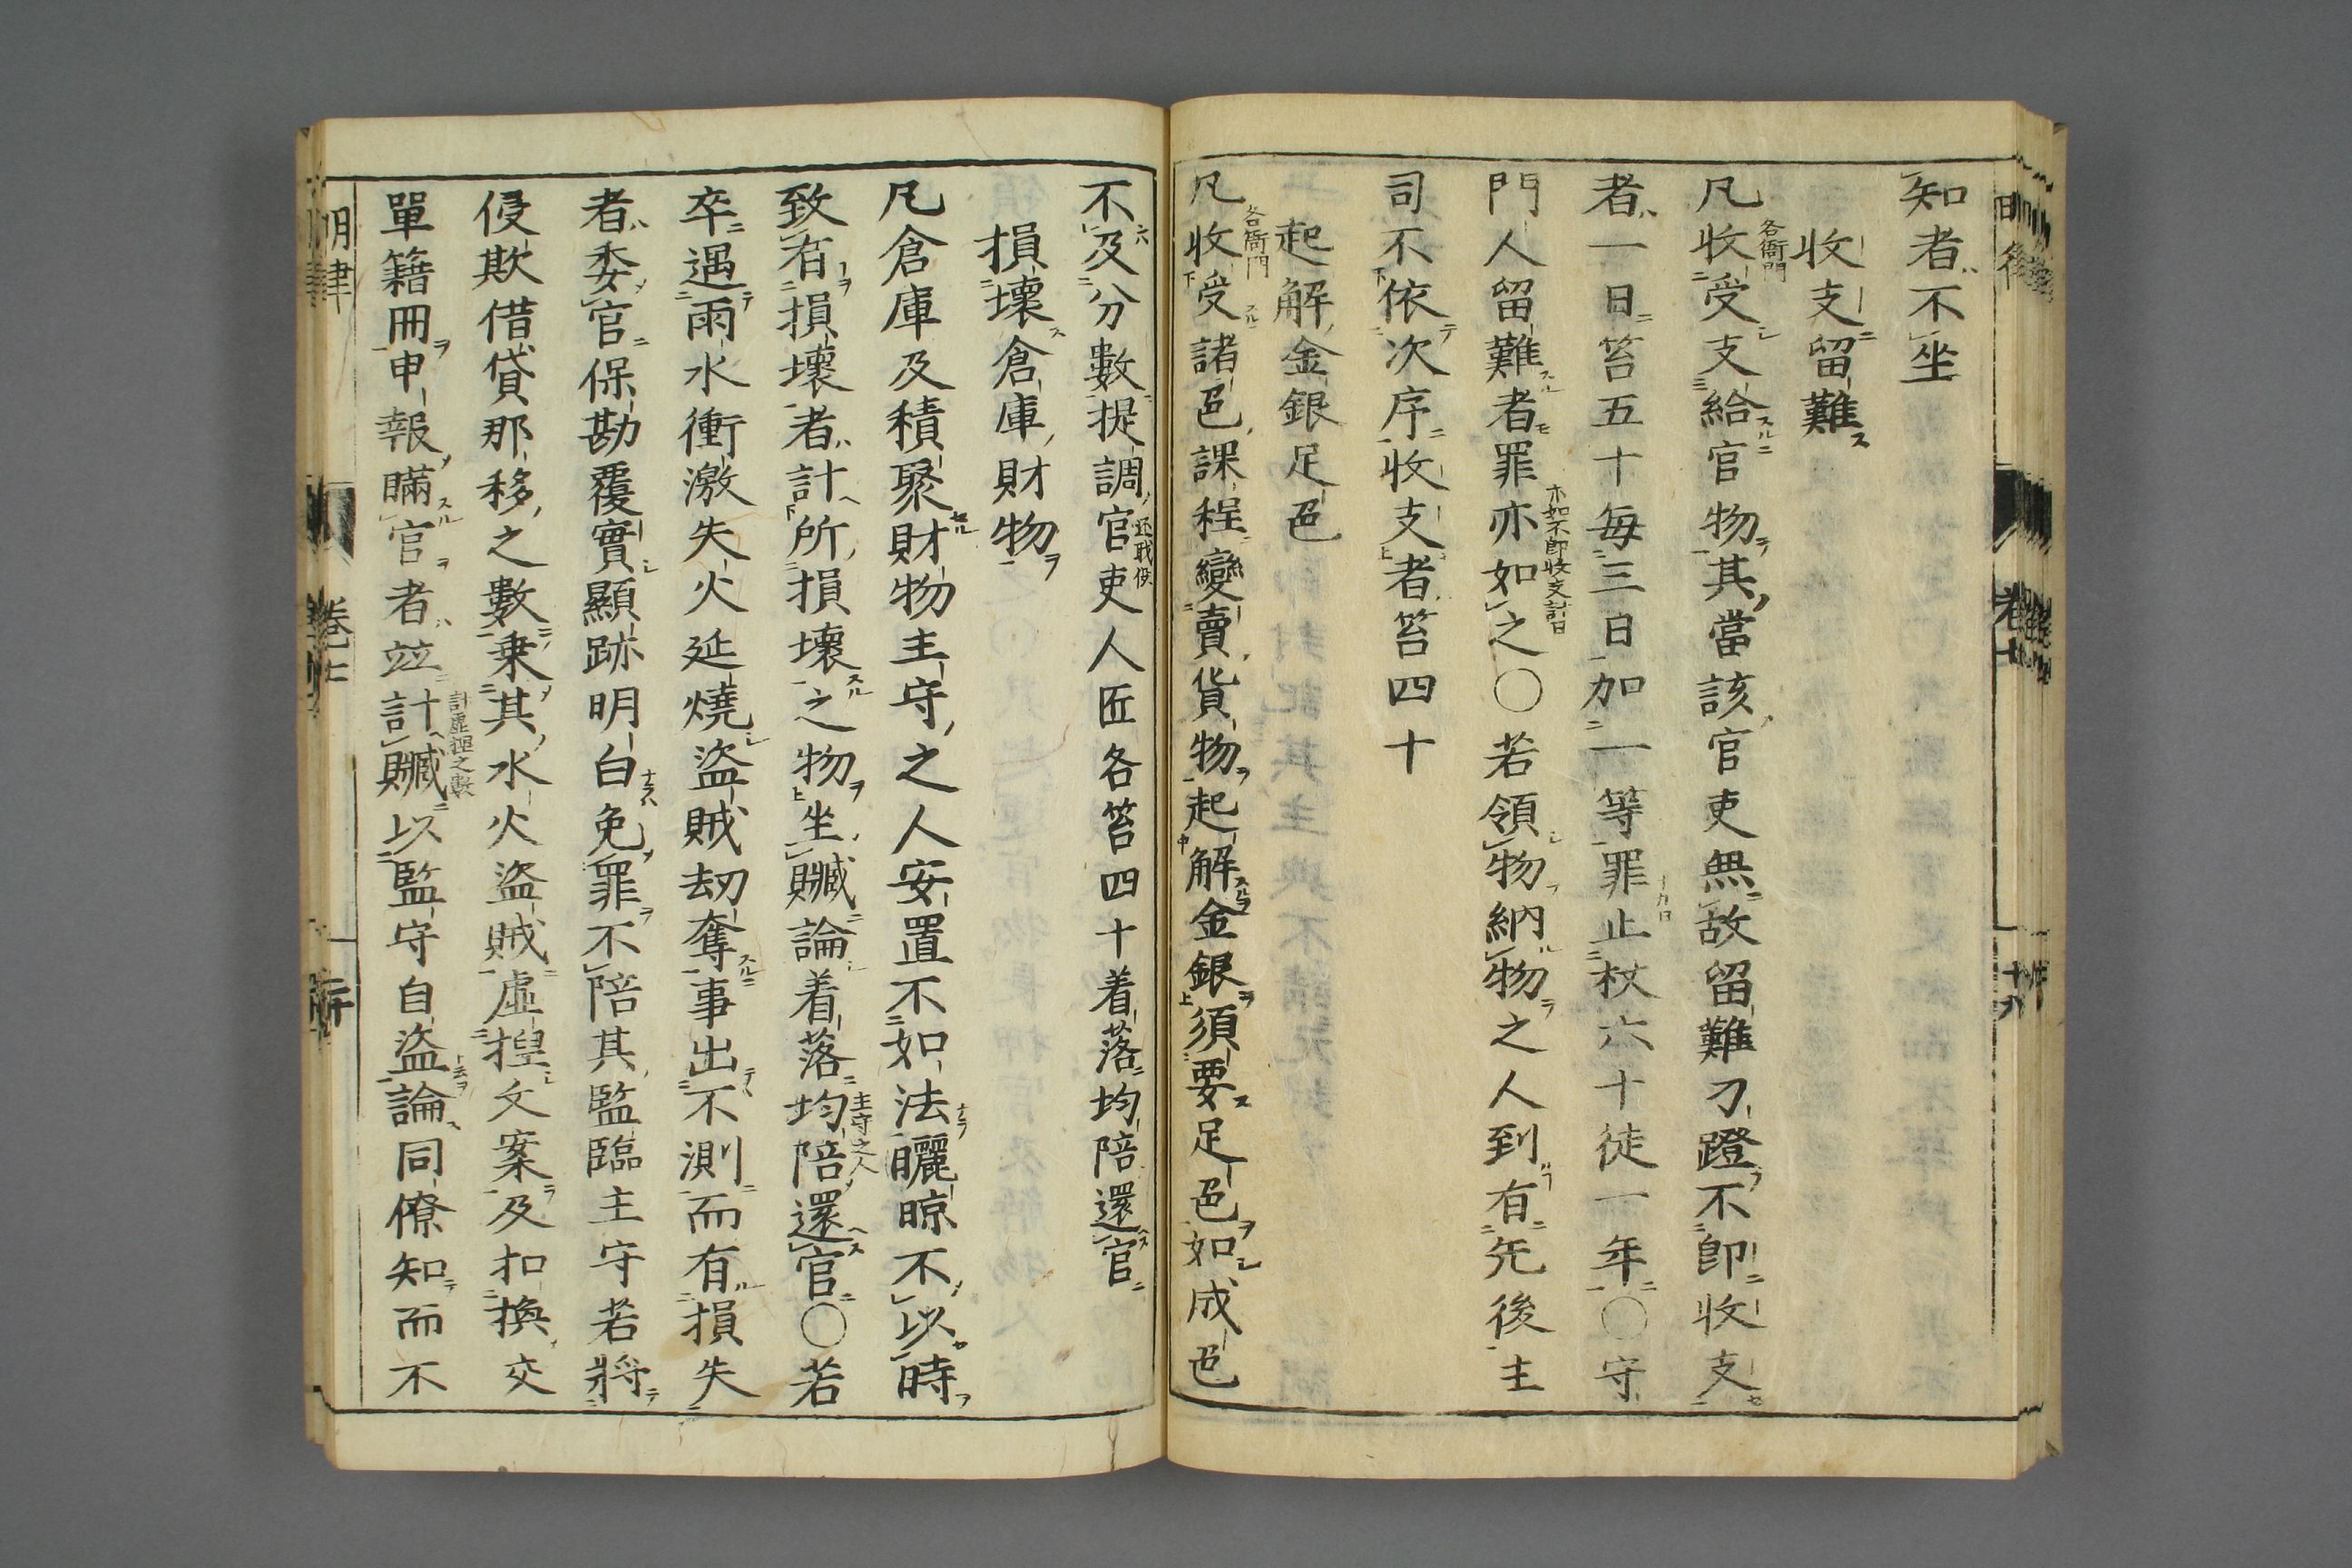 知者不坐
收支留難
凡收受支給官物其當該官吏無故留難刁蹬不卽收支
各衙門
者一日笞五十每三日加一等罪止杖六十徒一年○守
門人留難者罪亦如之○若領物納物之人到有先後主
亦如不卽收支計日
司不依次序收支者笞四十
起解金銀足色
凡收受諸色課程變賣貨物起解金銀須要足色如成色
各衙門
不及分數提調官吏人匠各笞四十着落均陪還官
損壞倉庫財物
凡倉庫及積聚財物主守之人安置不如法曬晾不以時
致有損壞者計所損壞之物坐贓論着落均陪還官○若
主守之人
卒遇雨水衝激失火延燒盜賊劫奪事出不測而有損失
者委官保勘覆實顯跡明白免罪不陪其監臨主守若將
侵欺借貸那移之數乗其水火盜賊虛揑文案及扣換交
單籍冊申報瞞官者並計贓以監守自盜論同僚知而不
計虛揑之數
明律
卷七
二十